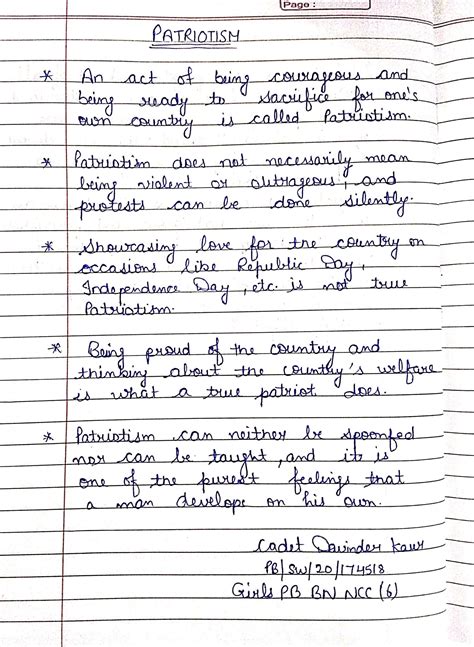 Page :
PATRIOTISM
* An act of being courageous and
being ready to sacrifice for one's
own country is called Patriotism.
* Patriotim does not necessarily mean
being violent or outrageous, and
protests can be done silently.
* Showcasing love for the country on
occasions like Republic Day,
Independence Day, etc. is not true
Patriotism.
* Being proud of the country and
thinking about the country's welfare
is what a true patriot does.
* Patriotism can neither be spoonfed
nor can be taught, and it is
one of the purest feelings that
a man develope on his own.
Cadet Davinder Kaur
PB/SW/20/174518
Girls PB BN NCC (6)